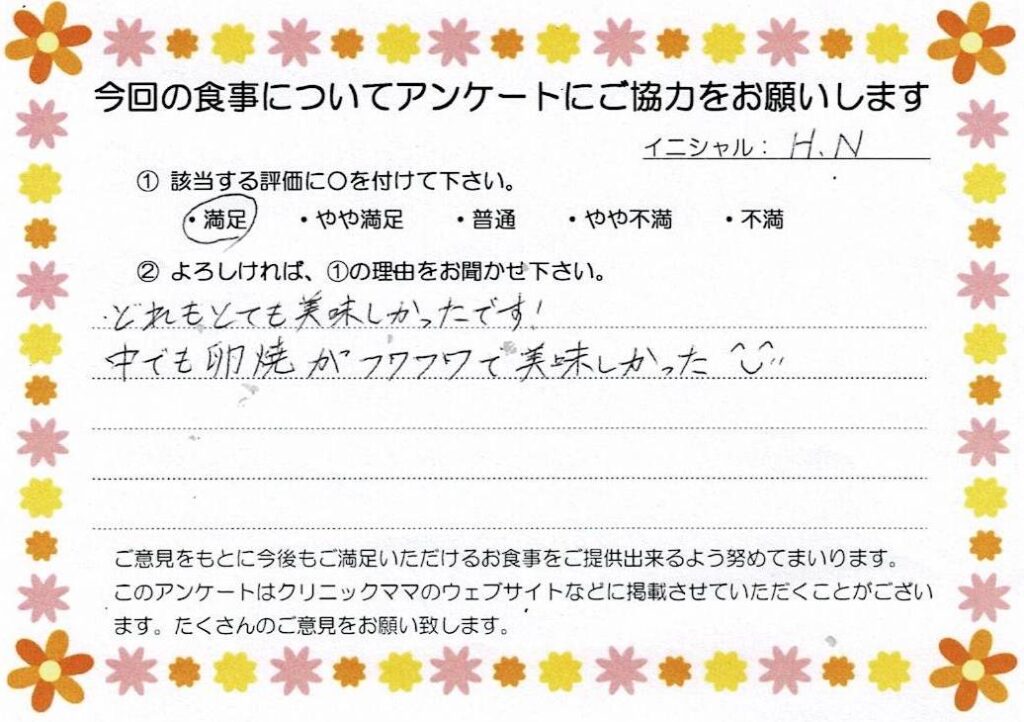 今回の食事についてアンケートにご協力をお願いします
イニシャル： H.N
① 該当する評価に〇を付けて下さい。
・満足 ・やや満足 ・普通 ・やや不満 ・不満
② よろしければ、①の理由をお聞かせ下さい。
どれもとても美味しかったです!
中でも卵焼がフワフワで美味しかった
ご意見をもとに今後もご満足いただけるお食事をご提供出来るよう努めてまいります。
このアンケートはクリニックママのウェブサイトなどに掲載させていただくことがござい
ます。たくさんのご意見をお願い致します。